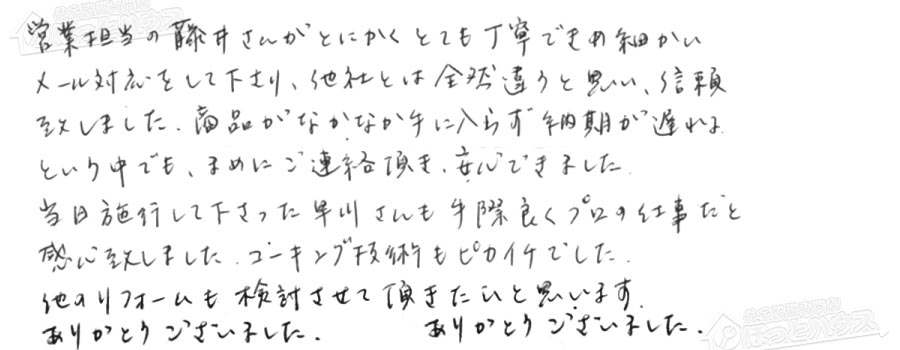 営業担当の藤井さんがとにかくとても丁寧できめ細かい
メール対応をして下さり、他社とは全然違うと思い、信頼
致しました。商品がなかなか手に入らず納期が遅れる
という中でも、まめにご連絡頂き、安心できました。
当日施行して下さった早川さんも手際良くプロの仕事だと
感心致しました。コーキング技術もピカイチでした。
他のリフォームも検討させて頂きたいと思います。
ありがとうございました。 ありがとうございました。
ほっとハウス